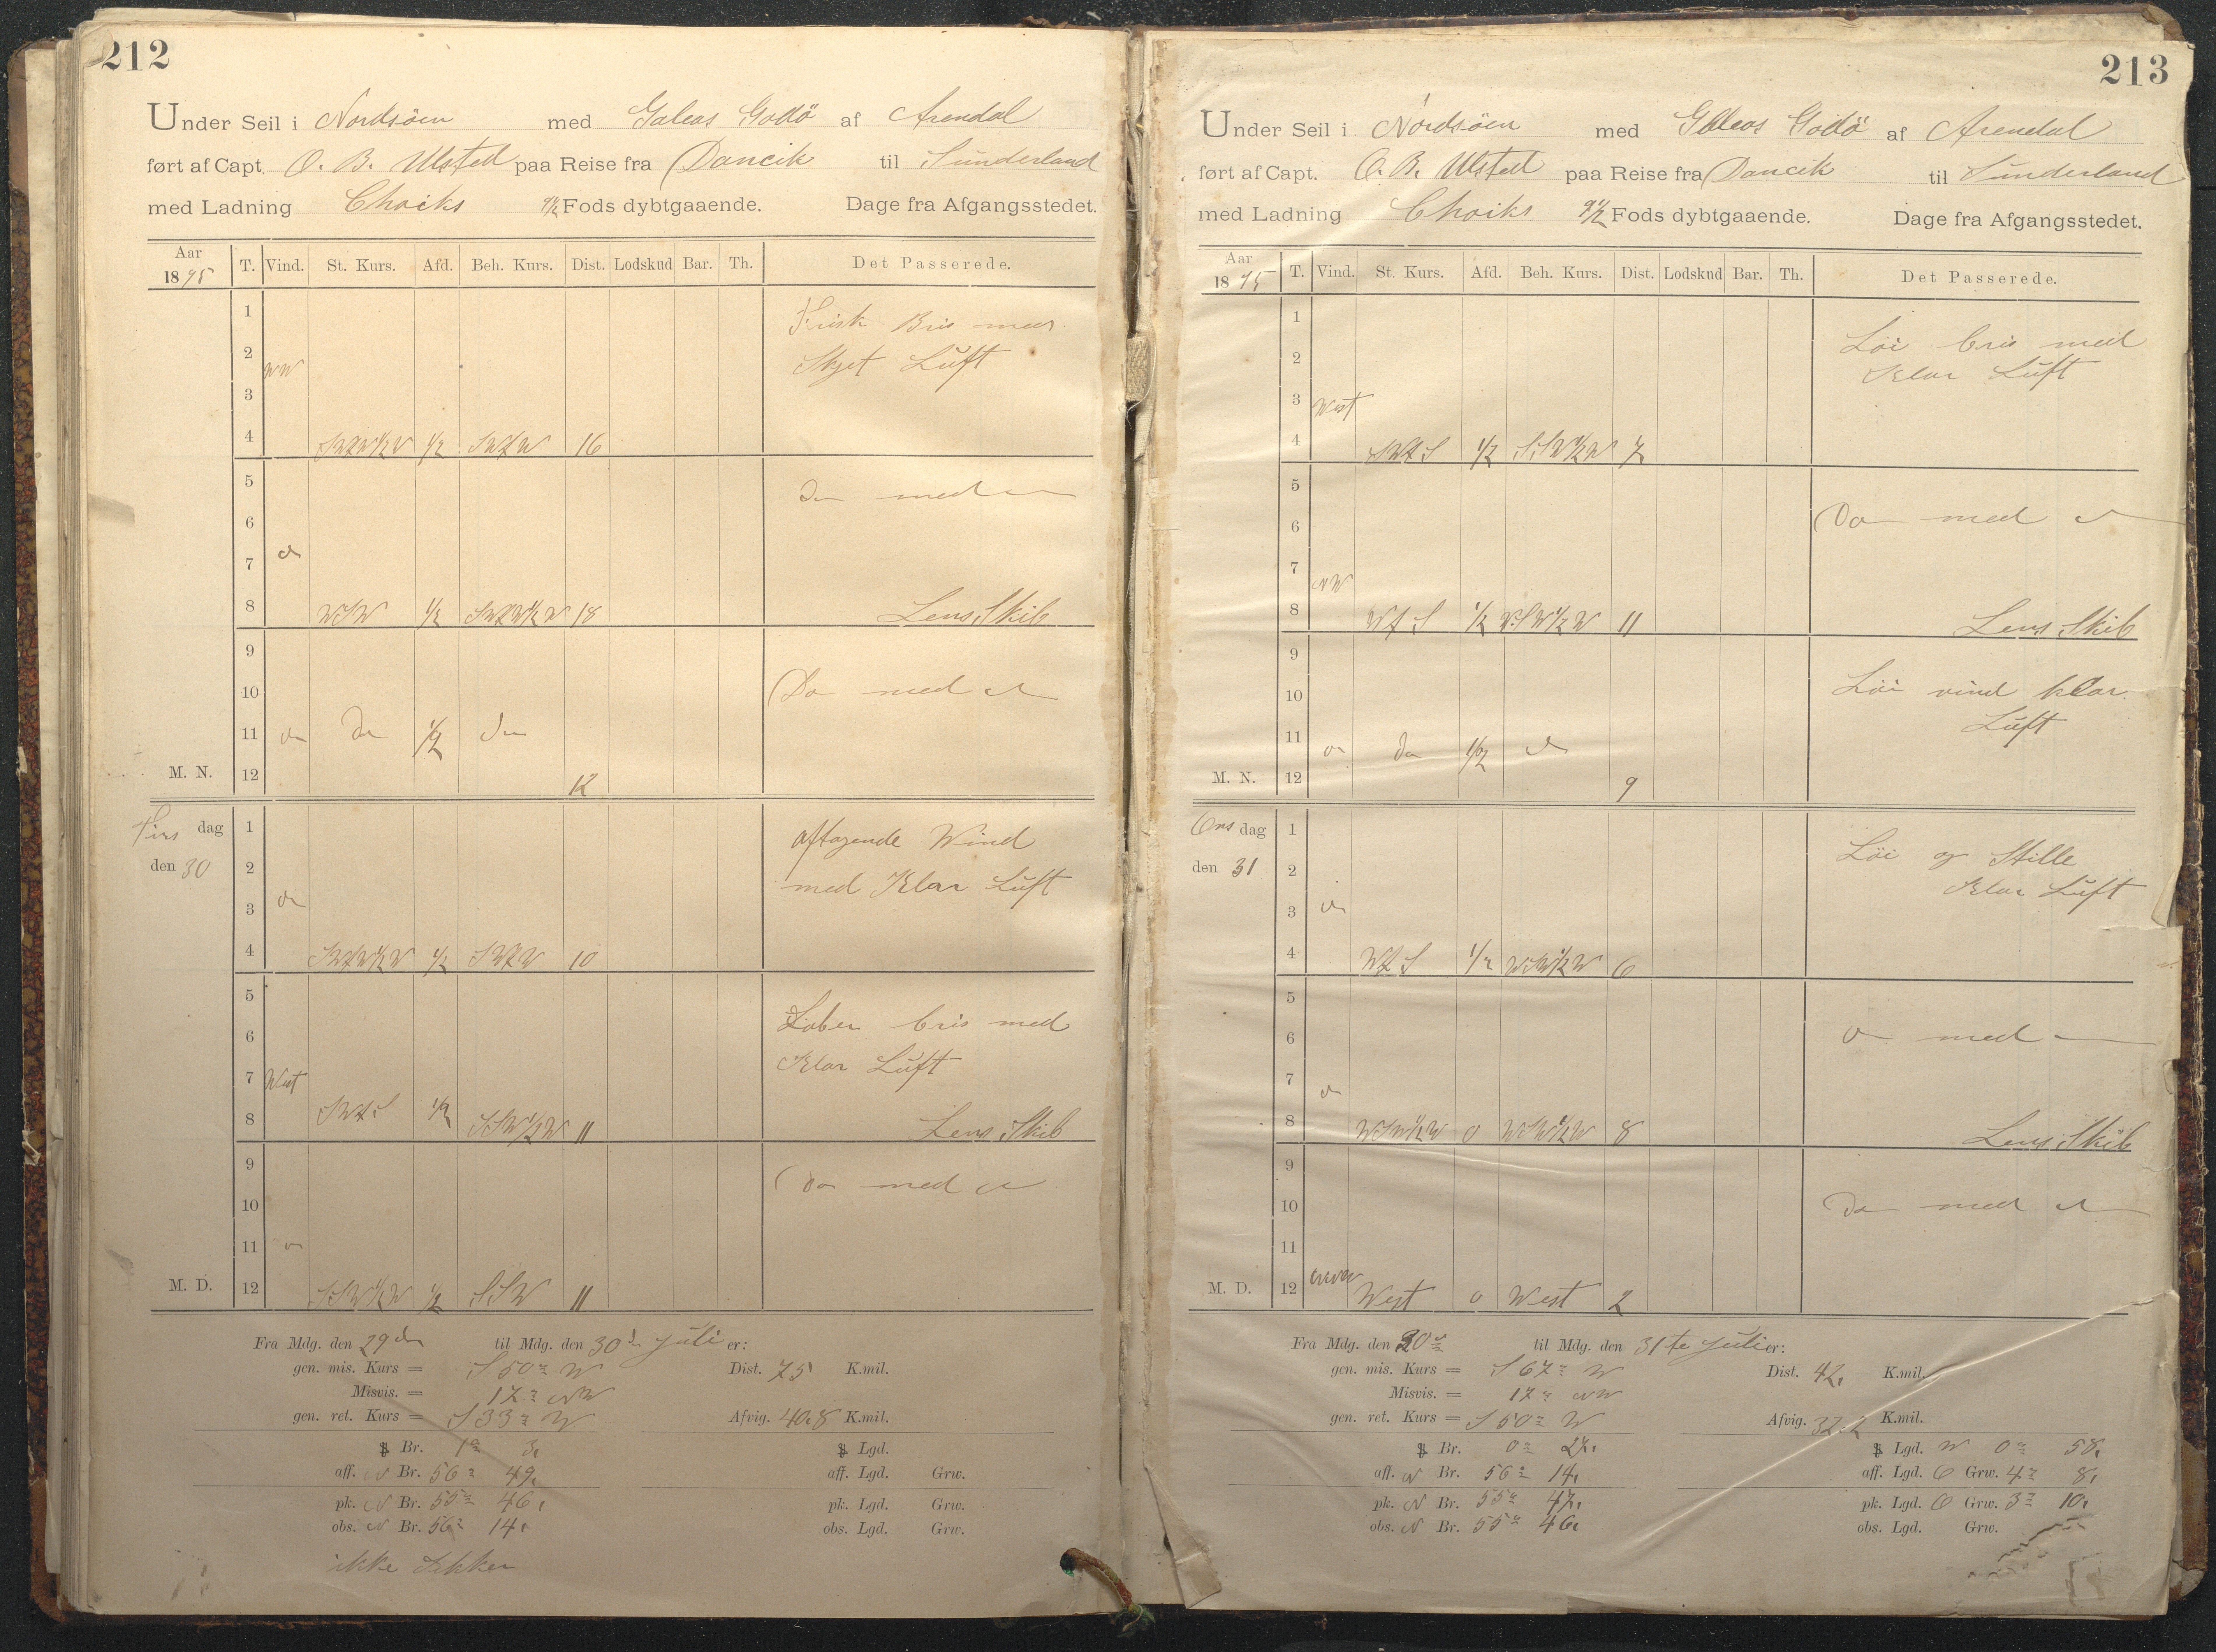 212
Under Seil i Nordsöen med Galeas Godö af Arendal
ført af Capt. O. B. Ulsted paa Reise fra Dancik til Sunderland
med Ladning 9 1/2 Fods dybtgaaende. Dage fra Afgangsstedet.
Aar 1895 T. Vind. St. Kurs. Afd. Beh. Kurs. Dist. Lodskud Bar. Th. Det Passerede.
1 Frisk Bris med
2 NW Skyet Luft
3
4 SWZW1/2W 1/2 SWZW 16
5 Do med do
6
7 do
8 WSW 1/2 SWZW1/2W 18 Lens Skib
9
10 Do med do
11 do do 1/2 do
M. N. 12 12
Tirs dag 1 aftagende Wind
den 30 2 med Klar Luft
3 do
4 SWZW1/2W 1/2 SWZW 10
5
6 Laber bris med
7 West Klar Luft
8 SWZS 1/2 SSW1/2W 11 Lens Skib
9
10 Do med do
11 do
M. D. 12 SSW1/2W 1/2 SSW 11
Fra Mdg. den 29de til Mdg. den 30te Juli er:
gen. mis. Kurs = S 50° W Dist. 75 K.mil.
Misvis. = 17° NW
gen. ret. Kurs = S 33° W Afvig. 40,8 K.mil.
Br. 1° 3, Lgd.
aff. N Br. 56° 49, aff. Lgd. Grw.
pk. N Br. 55° 46, pk. Lgd. Grw.
obs. N Br. 56° 14, obs. Lgd. Grw.
ikke Sikker
213
Under Seil i Nordsöen med Galeas Godö af Arendal
ført af Capt. O. B. Ulsted paa Reise fra Dancik til Sunderland
med Ladning 9 1/2 Fods dybtgaaende. Dage fra Afgangsstedet.
Aar 1895 T. Vind. St. Kurs. Afd. Beh. Kurs. Dist. Lodskud Bar. Th. Det Passerede.
1 Löi bris med
2 Klar Luft
3 West
4 SWZS 1/2 SSW1/2W 7
5
6 Do med do
7 NW
8 WZS 1/2 WSW1/2W 11 Lens Skib
9
10 Löi vind klar
11 do do 1/2 do Luft
M. N. 12 9
Ons dag 1 Löi og Stille
den 31 2 Klar Luft
3 do
4 WZS 1/2 WSW1/2W 6
5
6 do med do
7 do
8 WSW1/2W 0 WSW1/2W 8 Lens Skib
9
10 Do med do
11
M. D. 12 West 0 West 2
Fra Mdg. den 30te til Mdg. den 31te Juli er:
gen. mis. Kurs = S 67° W Dist. 42, K.mil.
Misvis. = 17° NW
gen. ret. Kurs = S 50° W Afvig. 32,2 K.mil.
Br. 0° 27, Lgd. W 0° 58,
aff. N Br. 56° 14, aff. Lgd. O Grw. 4° 8,
pk. N Br. 55° 47, pk. Lgd. O Grw. 3° 10,
obs. N Br. 55° 46, obs. Lgd. Grw.